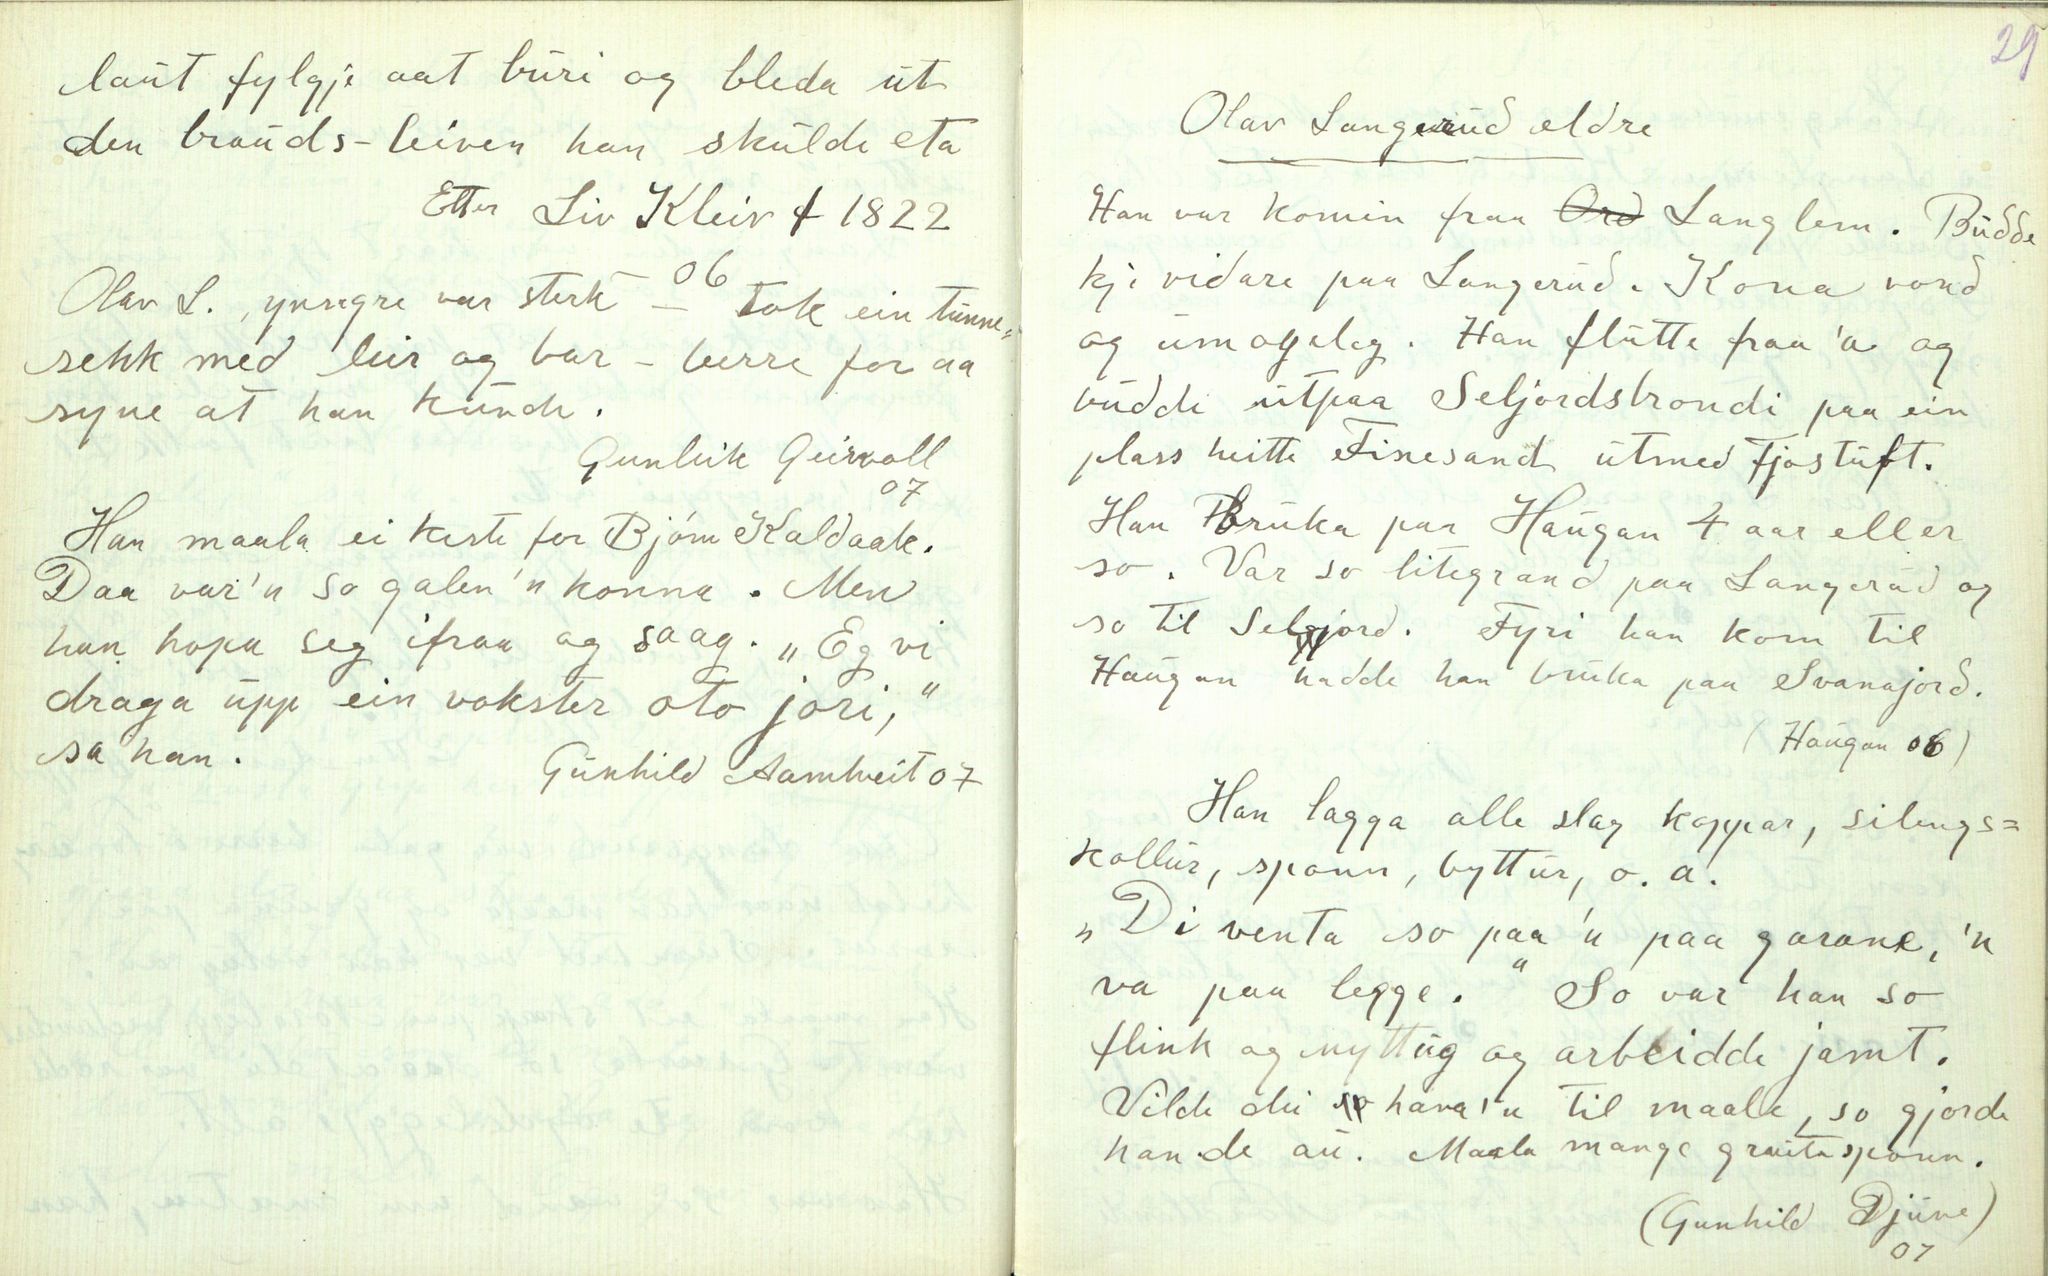 laut fylgje aat buri og bleda ut
den brauds-leiven han skulde eta
Etter Liv Kleiv f 1822
Olav L., yngre var sterk – 06 Tok ein tunne=
sekk med leir og bar – berre for aa
syne at han kunde.
Gunleik Geirvoll
07
Han maala ei kiste for Bjørn Kaldaak.
Daa var'n so galen'n konna. Men
han hopa seg ifraa og saag. „Eg vi
draga upp ein vokster oto jori,"
sa han.
Gunhild Aamtveit 07
29
Olav Langerud eldre
Han var komin fraa Ord Langlem. Budde
kje vidare paa Langerud. Kona vond
og umogeleg. Han flutte fraa 'a og
budde utpaa Seljordstrondi paa ein
plass heitte Finesand utmed Fjostuft.
Han bruka paa Haugan 4 aar eller
so. Var so litegrand paa Langerud og
so til Seljord. Fyri han kom til
Haugan hadde han bruka paa Svanajord.
(Haugan 06)
Han lagga alle slag koppar, silengs=
kollur, sponn, byttur, o. a.
„Di venta so paa'n paa garane, 'n
va paa legge." So var han so
flink og nyttug og arbeidde jamt.
Vilde dei hava'n til maale, so gjorde
han de au. Maala mange grautasponn.
(Gunhild Djuve)
07